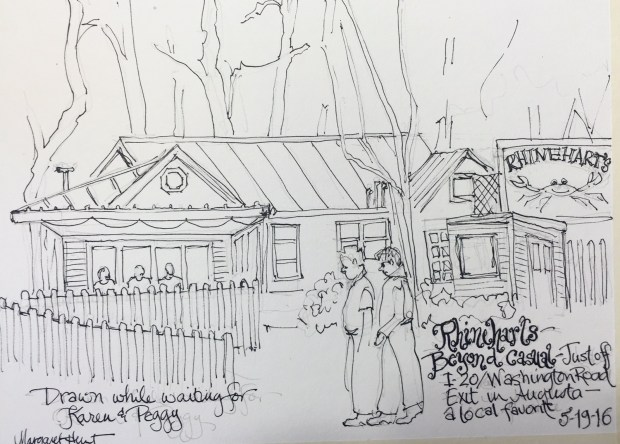 RHINEHART'S
Rhineharts
Beyond Casual - Just off
I-20/Washington Road
Exit in Augusta -
a local favorite 5-19-16
Drawn while waiting for
Karen & Peggy
Margaret Hunt